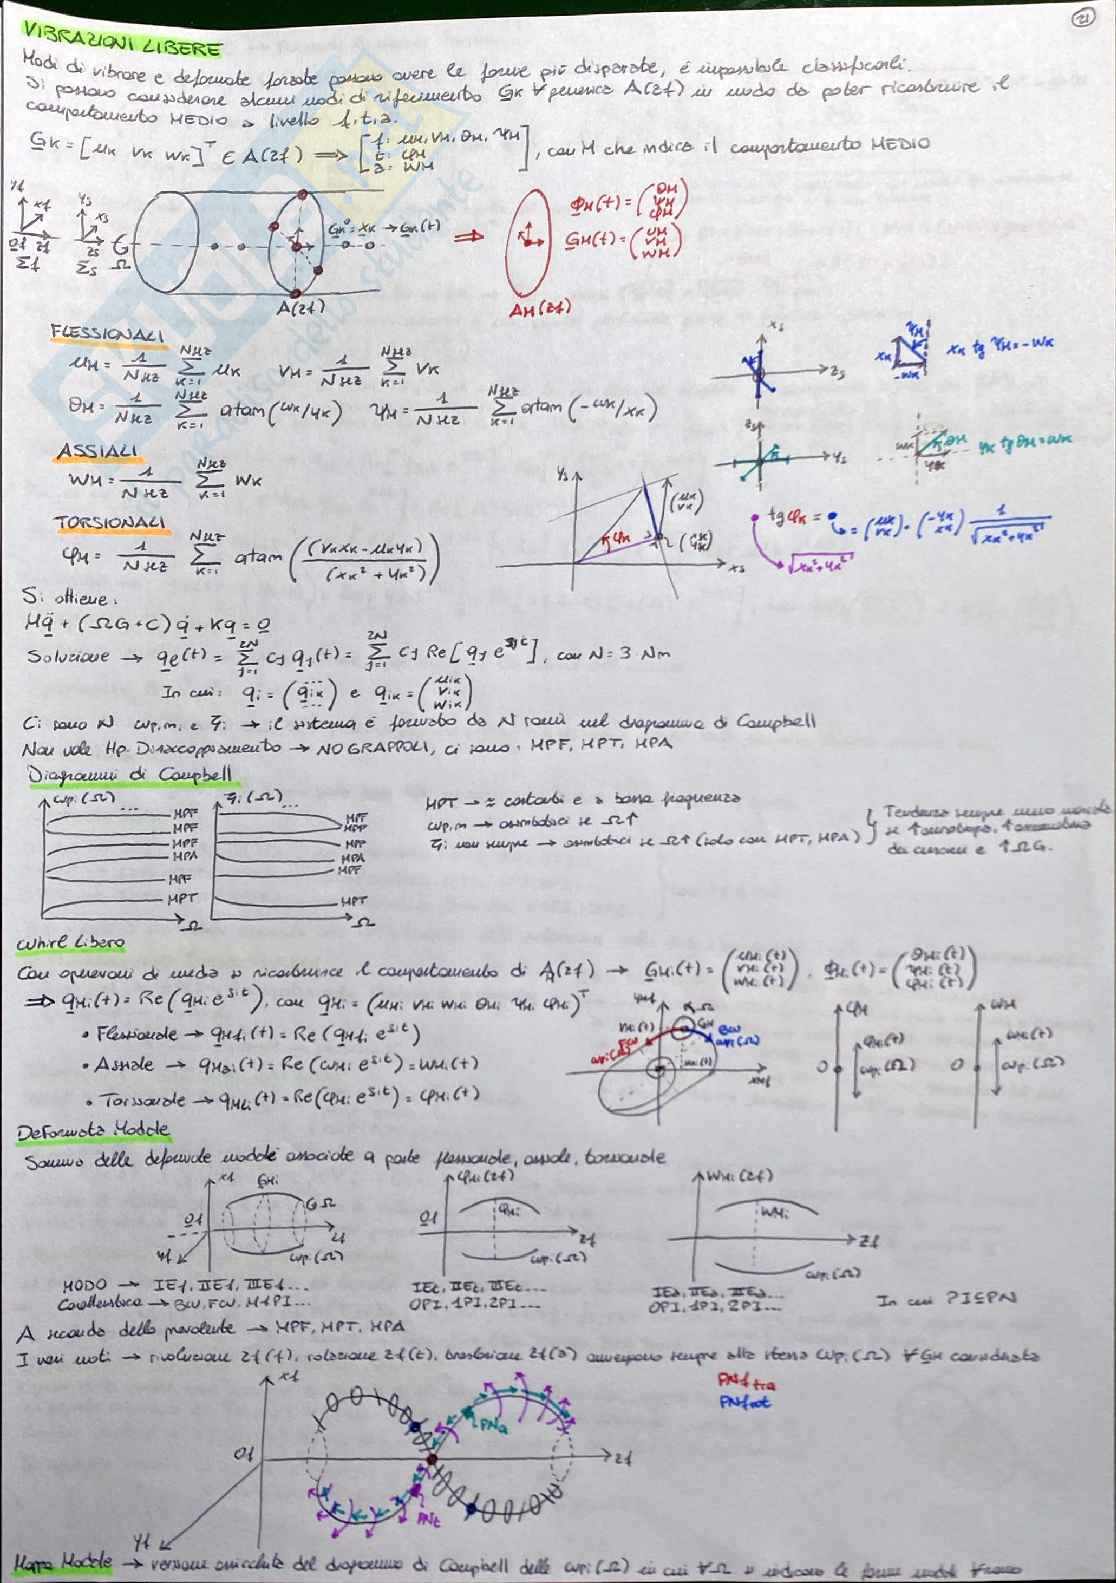 21
VIBRAZIONI LIBERE
Modi di vibrare e deformate forzate possono avere le forme più disparate, è impossibile classificarli.
Si possono considerare alcuni nodi di riferimento GK ∀ generica A(zf) in modo da poter ricostruire il
comportamento MEDIO a livello f,t,a.
GK = [uK vK wK]^T ∈ A(zf) ⟹ [f: uM, vM, θM, ψM t: φM a: wM], con M che indica il comportamento MEDIO
yf xf Of zf Σf
ys xs zs Σs Ω
GK° = XK → GK(t)
A(zf)
⟹
AM(zf)
ΦM(t) = (θM ψM φM)
GM(t) = (uM vM wM)
FLESSIONALI
uM = 1/NMz Σ_{K=1}^{NMz} uK   vM = 1/NMz Σ_{K=1}^{NMz} vK
θM = 1/NMz Σ_{K=1}^{NMz} atan(wK/yK)   ψM = 1/NMz Σ_{K=1}^{NMz} atan(-wK/xK)
xs zs
ψM xK -wK xK tg ψM = -wK
zs ys
wK θM yK yK tg θM = wK
ASSIALI
wM = 1/NMz Σ_{K=1}^{NMz} wK
TORSIONALI
φM = 1/NMz Σ_{K=1}^{NMz} atan((vK xK - uK yK)/(xK² + yK²))
ys φK (uK vK) (xK yK) xs
tg φK =
= (uK vK) · (-yK xK) 1/√(xK² + yK²)
√(xK² + yK²)
Si ottiene:
Mq̈ + (ΩG + C)q̇ + Kq = 0
Soluzione → qe(t) = Σ_{j=1}^{2N} cj qj(t) = Σ_{j=1}^{2N} cj Re[qj e^{sjt}], con N = 3·Nm
In cui: qi = (--- qiK ---) e qiK = (uiK viK wiK)
Ci sono N ωp,m, e ξi → il sistema è formato da N rami nel diagramma di Campbell
Non vale Hp. Disaccoppiamento → NO GRAPPOLI, ci sono: MPF, MPT, MPA
Diagrammi di Campbell
ωpi(Ω) ... MPF MPF MPF MPA MPF MPT Ω
ξi(Ω) ... MPF MPF MPF MPA MPF MPT Ω
MPT → ≈ costanti e a bassa frequenza
ωp,m → asintotici se Ω↑
ξi non sempre → asintotici se Ω↑ (solo con MPT, MPA)
Tendenza sempre meno
se ↑
da e ↑ΩG.
Whirl Libero
Con operazioni di media si ricostruisce il comportamento di AM(zf) → GMi(t) = (uMi(t) vMi(t) wMi(t)), ΦMi(t) = (θMi(t) ψMi(t) φMi(t))
⟹ qMi(t) = Re(qMi e^{sit}), con qMi = (uMi vMi wMi θMi ψMi φMi)^T
• Flessionale → qMfi(t) = Re(qMfi e^{sit})
• Assiale → qMai(t) = Re(wMi e^{sit}) = wMi(t)
• Torsionale → qMti(t) = Re(φMi e^{sit}) = φMi(t)
yMf Ω vMi(t) GM FW ωpi(Ω) BW ωpi(Ω) uMi(t) xMf
φM φMi(t) ωpi(Ω) O
wM wMi(t) ωpi(Ω) O
Deformata Modale
Somma delle deformate modali associate a parte flessionale, assiale, torsionale
xf GMi Ω Of zf yf ωpi(Ω)
φMi(zf) φMi Of zf ωpi(Ω)
wMi(zf) wMi zf ωpi(Ω)
MODO → IEf, IIEf, IIIEf...   IEt, IIEt, IIIEt...   IEa, IIEa, IIIEa...
Caratteristica → BW, FW, MfPI...   0PI, 1PI, 2PI...   0PI, 1PI, 2PI...   In cui PI≤PN
A seconda della prevalente → MPF, MPT, MPA
I vari moti → rivoluzione zf(f), rotazione zf(t), traslazione zf(a) avvengono sempre alla stessa ωpi(Ω) ∀ GM considerata
xf Of zf yf
PNa
PNt
PNf tra
PNf rot
Mappa Modale → versione arricchita del diagramma di Campbell delle ωpi(Ω) in cui ∀Ω si indicano le forme modali ∀ramo